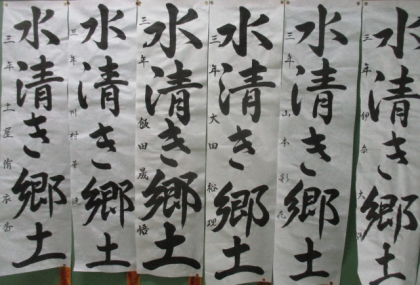 水清き郷土
年
水清き郷土
山本彩
水清き郷土
三年 大田裕理
水清き郷土
三年 飯田晟悟
水清き郷土
三年 川村
水清き郷土
三年 土屋